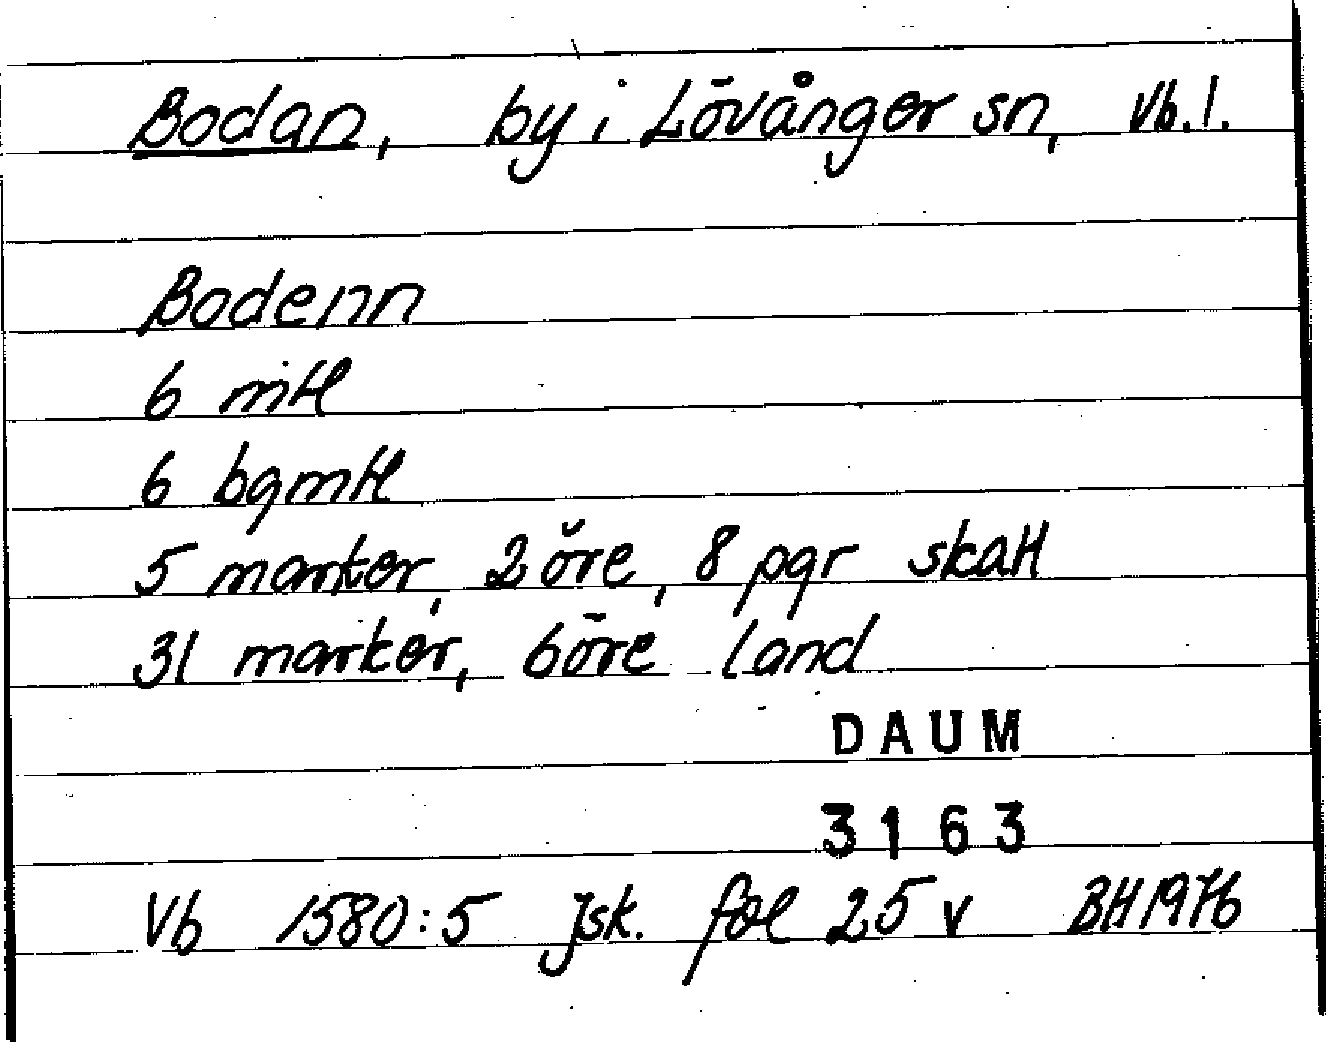 Bodan, by i Lövånger sn, Vb. l.
Bodenn
6 mtl
6 bgmtl
5 marker, 2 öre, 8 pgr skatt
31 marker, 6 öre land
DAUM
3163
Vb 1580:5 Jsk. fol 25 v BH 1976